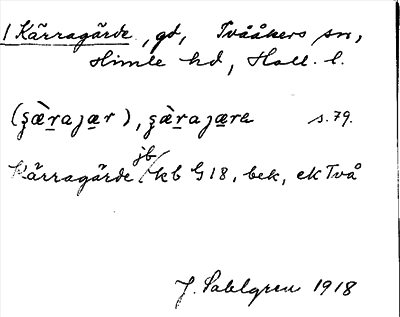 1 Kärragärde, gd, Tvååkers sn,
Himle hd, Hall. l.
(ʂæ̀rajær), ʂæ̀rajæra s. 79.
Kärragärde jb/kb G 18, bek, ek Två
J. Sahlgren 1918